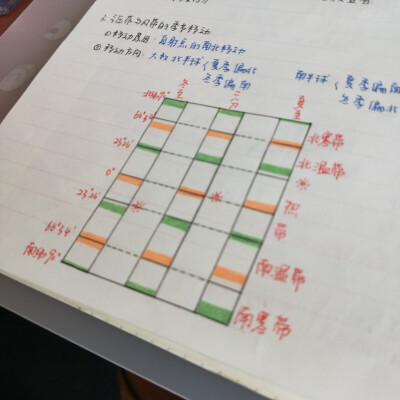 2. 气压带与风带的季节移动
①移动原因: 直射点的南北移动
②移动方向: 大致北半球 夏季偏北 南半球 夏季偏南
冬季偏南 冬季偏北
冬至 二分 夏至
北寒带
北温带
23°26′
0°
热
23°26′
带
南温带
南寒带